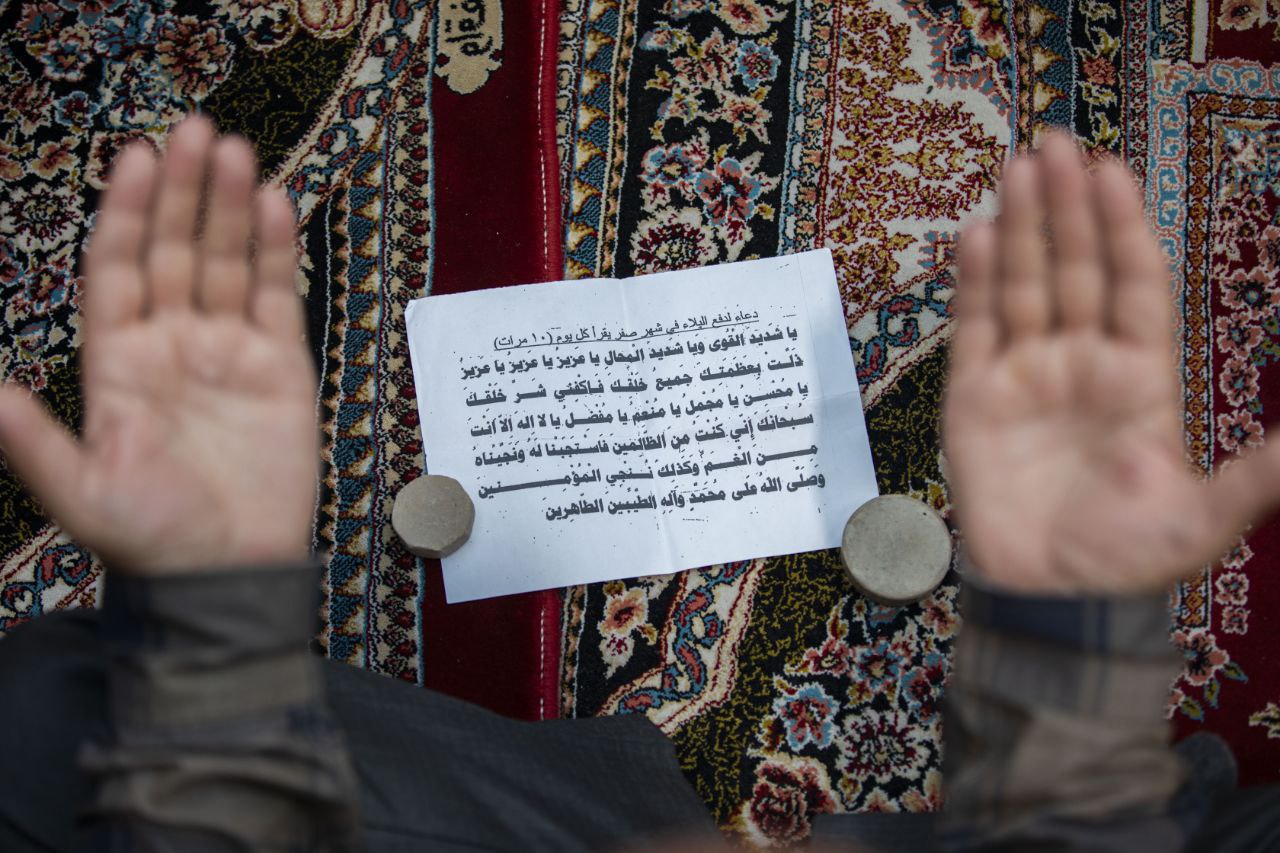 دعاء لدفع البلاء في شهر صفر يقرأ كل يوم (١٠ مرات)
يا شَديدَ الْقُوى وَيا شَديدَ الْمِحالِ يا عَزيزُ يا عَزيزُ يا عَزيزُ
ذَلَّتْ بِعَظَمَتِكَ جَميعُ خَلْقِكَ فَاكْفِني شَرَّ خَلْقِكَ
يا مُحْسِنُ يا مُجْمِلُ يا مُنْعِمُ يا مُفْضِلُ يا لا اله الّا اَنْتَ
سُبحانَكَ إِنّي كُنْتُ مِنَ الظّالِمينَ فَاسْتَجَبْنا لَهُ وَنَجَّيْناهُ
مِـــنَ الْغَـــمِّ وَكَذلِكَ نُـــنْجي الْمُؤْمِـــــــنين
وَصَلَّى اللهُ عَلى مُحَمَّدٍ وَآلِهِ الطَّيِّبينَ الطّاهِرينَ